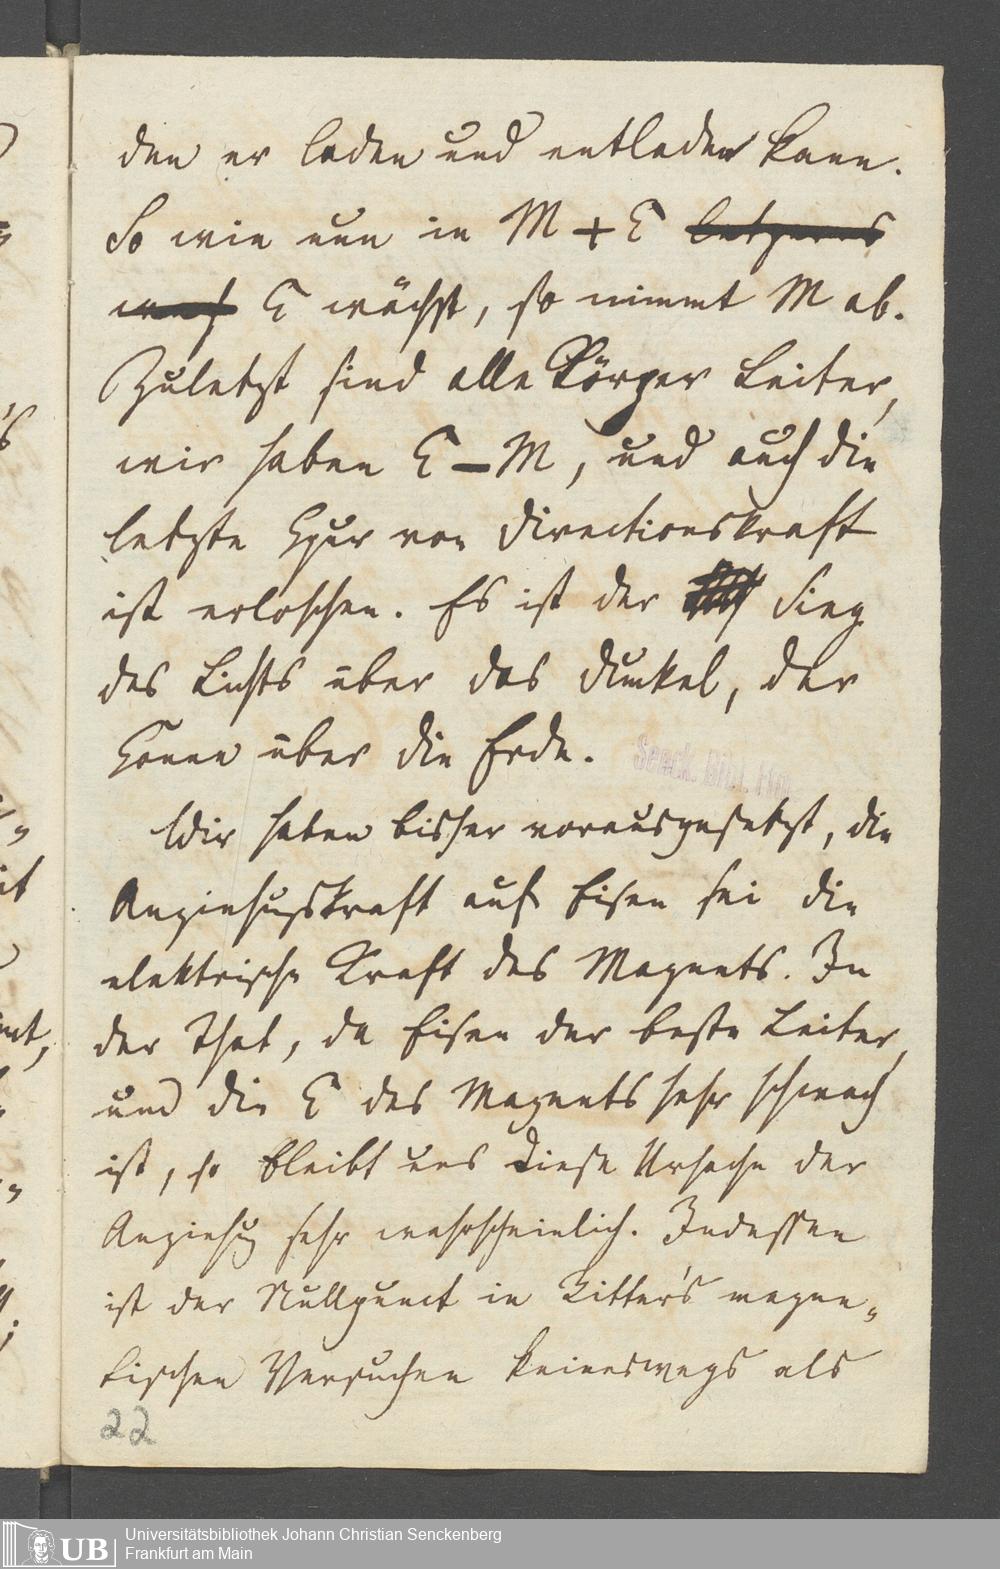 den er laden und entladen kann.
So wie nun in M + E letzeres
E wächst, so nimmt M ab.
Zuletzt sind alle Körper Leiter,
wir haben E – M, und auch die
letzte Spur von Directionskraft
ist erloschen. Es ist der Sieg
des Lichts über das Dunkel, der
Sonne über die Erde.
Senck. Bibl. Ffm.
Wir haben bisher vorausgesetzt, die
Anziehungskraft auf Eisen sei die
elektrische Kraft des Magnets. In
der That, da Eisen der beste Leiter,
und die E des Magnets sehr schwach
ist, so bleibt uns diese Ursache der
Anziehug sehr wahrscheinlich. Indessen
ist der Nullpunct in Ritter's magne„
tischen Versuchen keineswegs als
22
UB Universitätsbibliothek Johann Christian Senckenberg
Frankfurt am Main